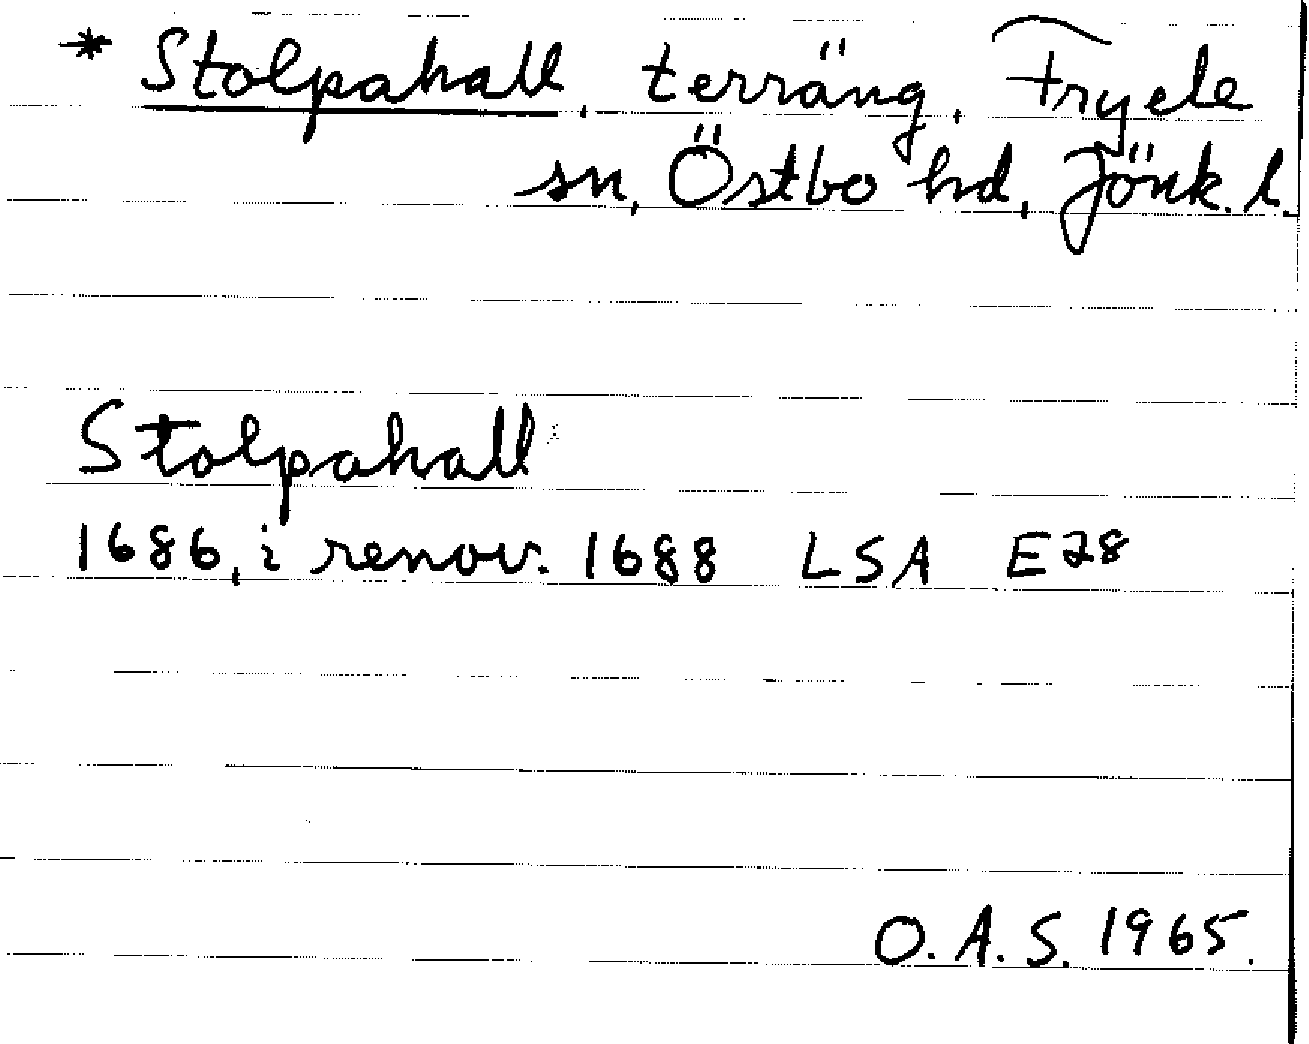 * Stolpahall, terräng, Fryele
sn, Östbo hd, Jönk. l.
Stolpahall
1686, i renov. 1688 LSA E28
O.A.S. 1965.